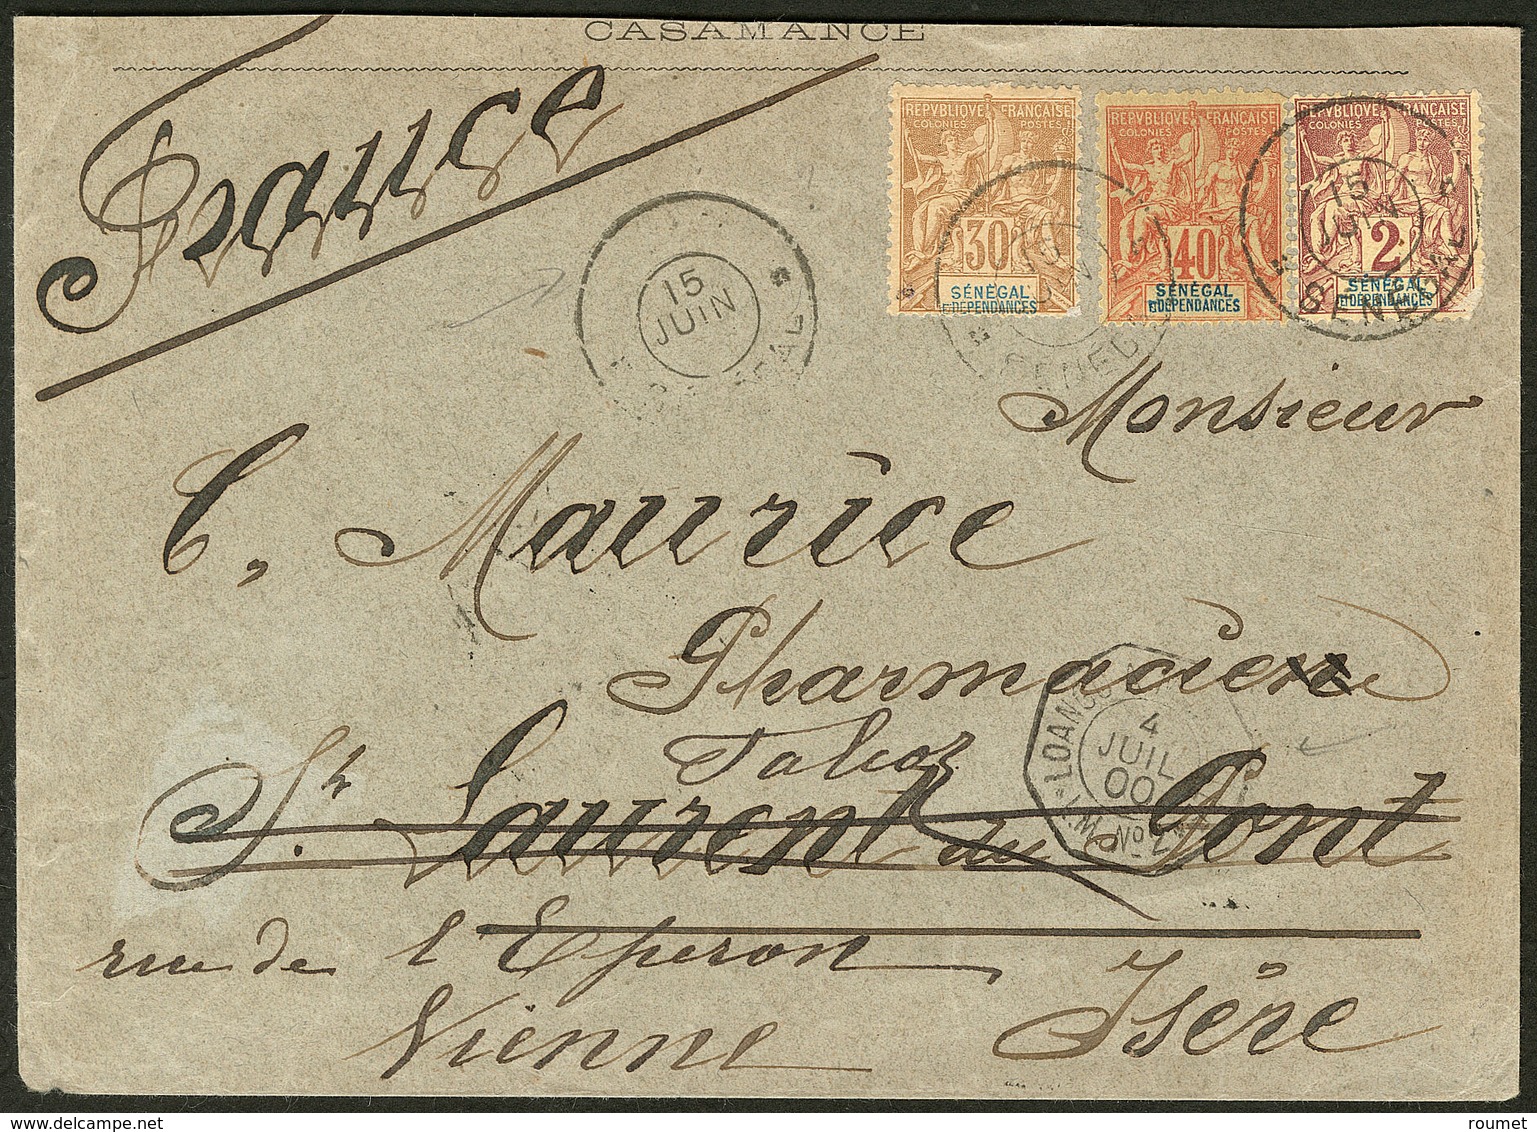 CASAMANCE
France
REPUBLIQUE FRANÇAISE
COLONIES POSTES
30
SÉNÉGAL
ET DÉPENDANCES
REPUBLIQUE FRANÇAISE
COLONIES POSTES
40
SÉNÉGAL
ET DÉPENDANCES
REPUBLIQUE FRANÇAISE
COLONIES POSTES
2
SÉNÉGAL
ET DÉPENDANCES
15
JUIN
15
JUIN
SENEGAL
Monsieur
C. Maurice
Pharmacien
St Laurent du Pont
4
JUIL
00
LOANGO
No 2
rue de l'Eperon
Isère
Vienne
roumet - delcampe.net